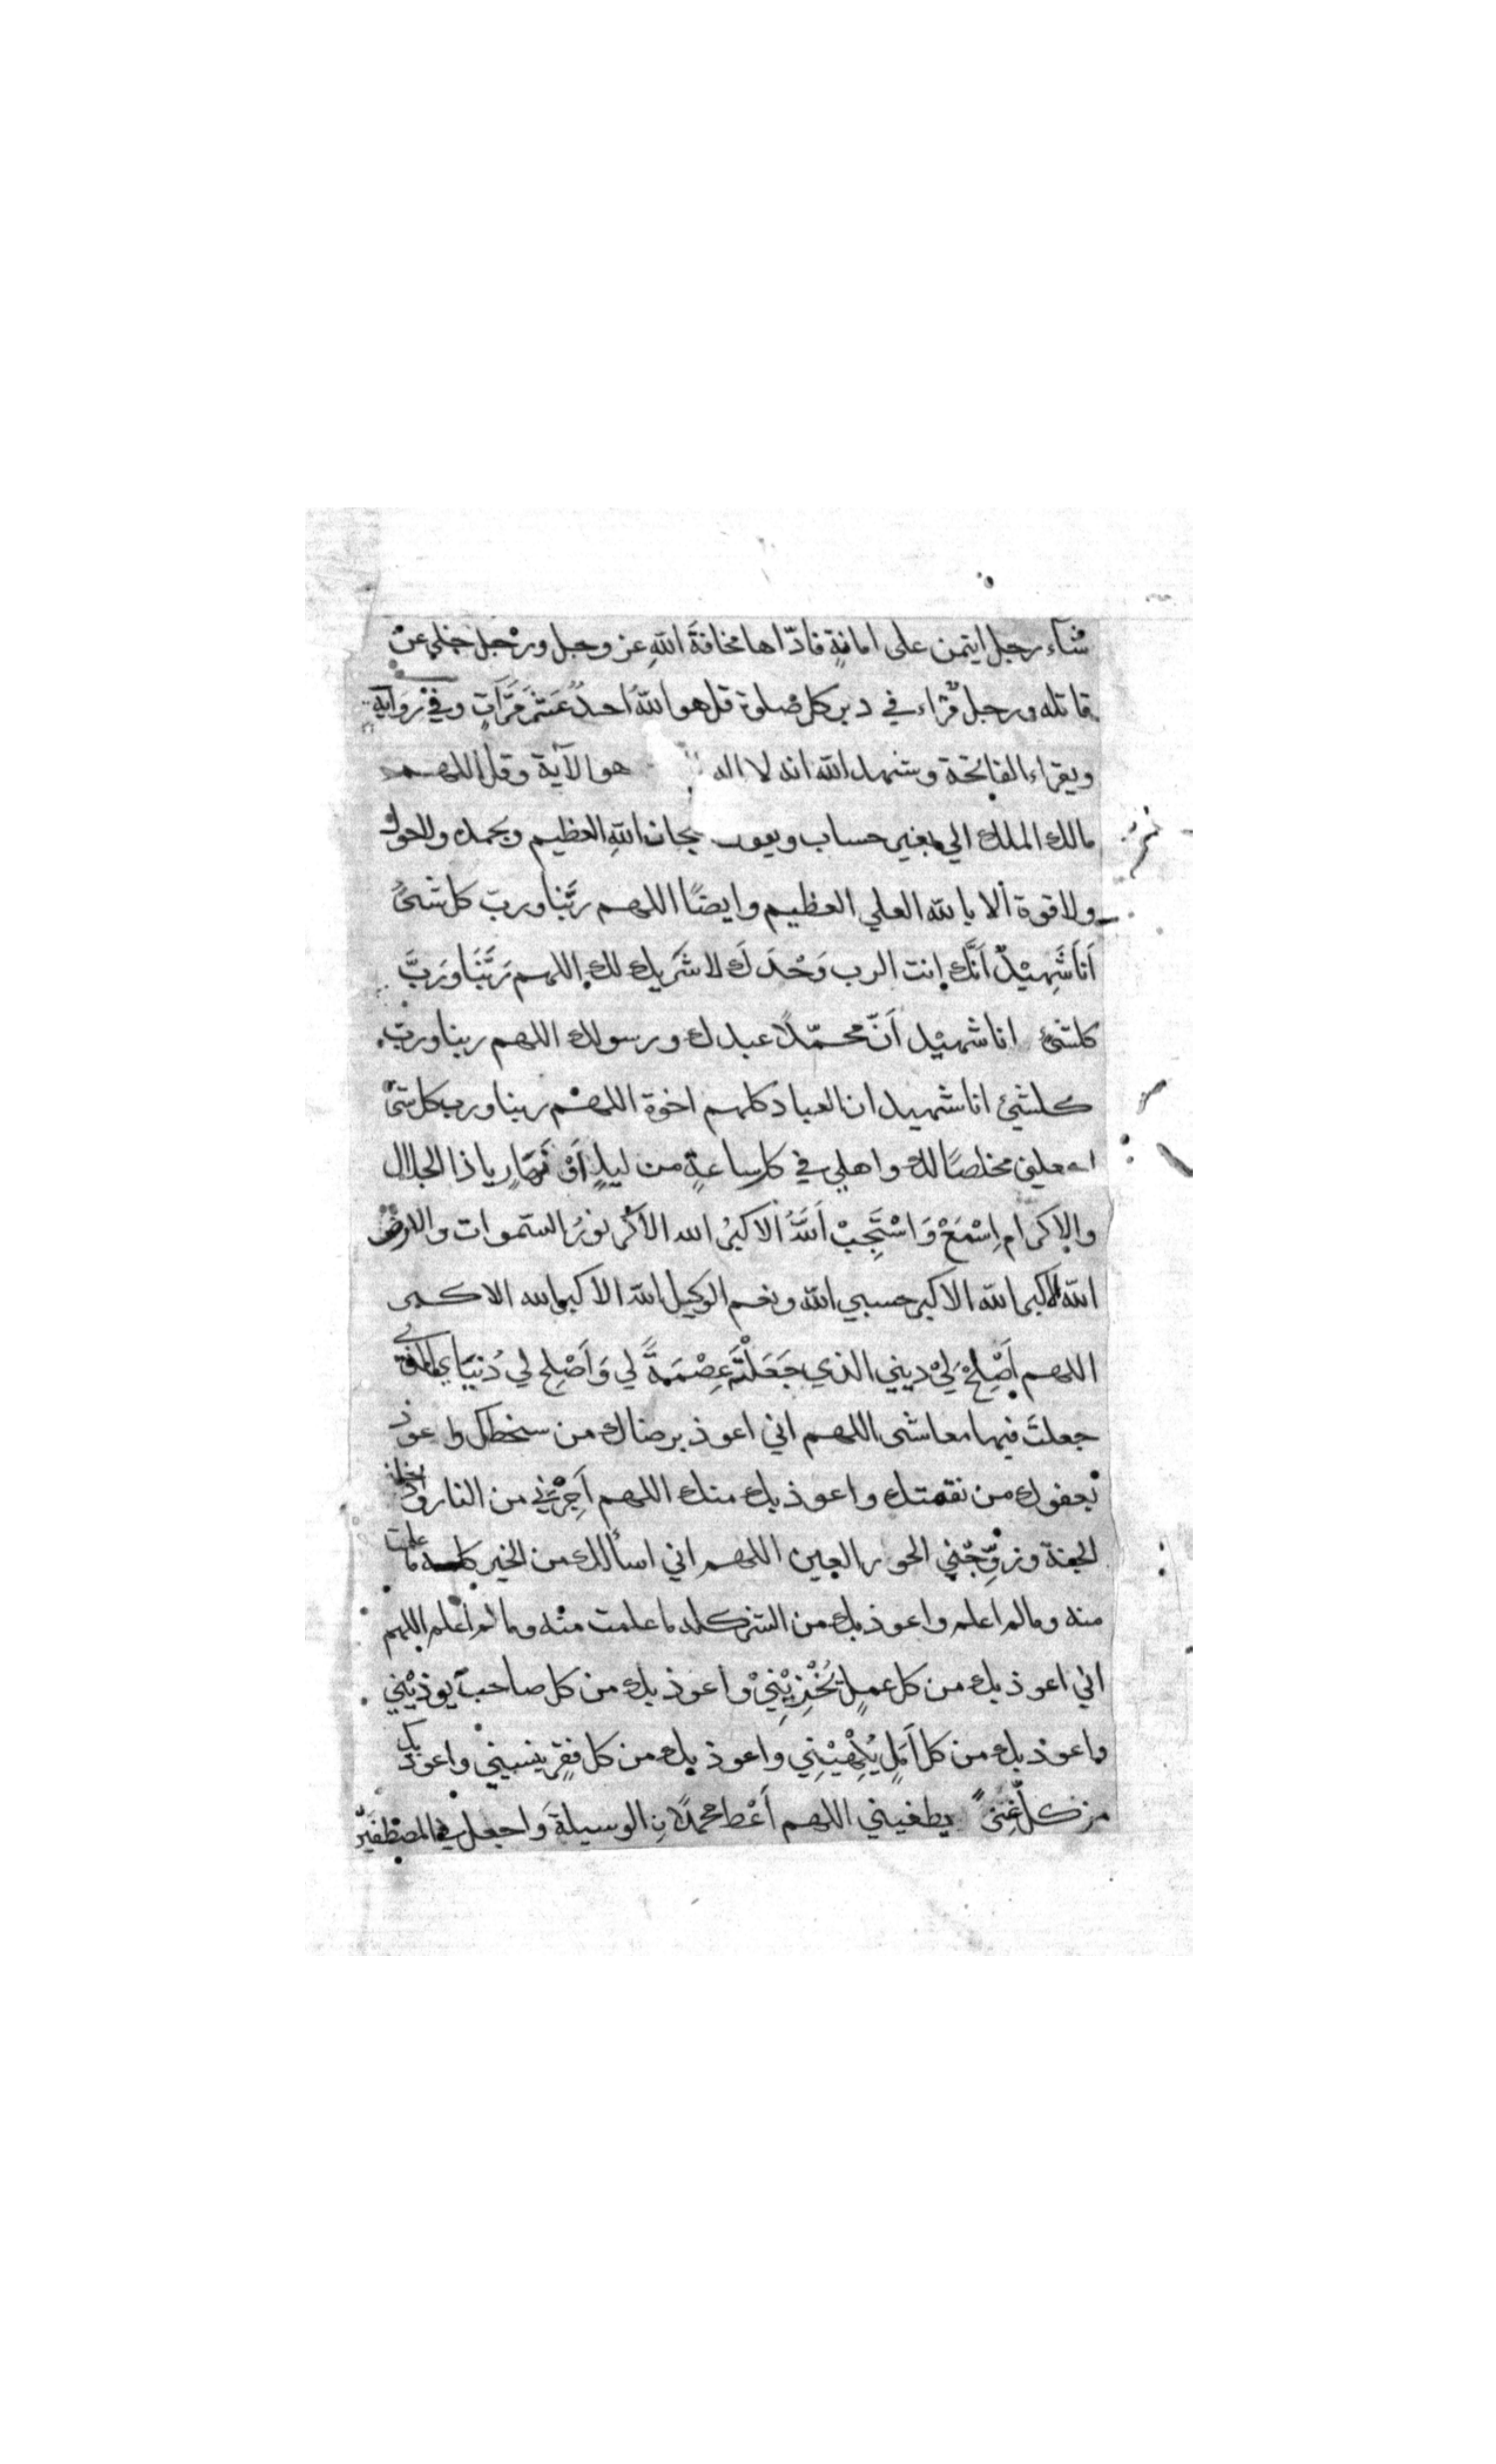 شآء رجل ايتمن على امانةٍ فادّاها مخافةَ اللهِ عز وجل ورجل خلى عن
قاتله ورجل قراء في دبر كل صلوة قل هو اللهُ احدٌ عشر مَرَّاتٍ وفي رَوايةٍ
ويقراء الفاتحة وشهد الله انه لا اله هو الآية وقل اللهم
مالك الملك الي بغير حساب ويقول بحان اللهِ العظيم وبحمده ولا حول
ولا قوة الا بالله العلي العظيم وايضًا اللهم رَبَّنا ورب كل شئٍ
اَنَا شَهِيْدٌ اَنَّكَ انت الرب وَحْدَكَ لا شَرِيك لك اللهم رَبَّنَا وَرَبَّ
كلشئ انا شهيْد اَنّ محمّدًا عبدك ورسولك اللهم ربنا ورب
كلشئ انا شهيد ان العباد كلهم اخوة اللهم ربنا ورب كل شئ
اجعلني مخلصًا لك واهلي في كل ساعةٍ من ليلٍ اَوْ نَهَارٍ يا ذا الجلال
والاكرام اِسْمَعْ وَاسْتَجِبْ اَللهُ الاكبرُ الله الاكبر نورُ السموات والارض
الله الاكبر الله الاكبر حسبي الله ونعم الوكيل الله الاكبر الله الاكبر
اللهم اَصْلِحْ لِيْ ديني الذي جَعَلْتَهُ عِصْمَةً لي وَاَصْلِح لي دُنيَاي التي
جعلتَ فيها معاشى اللهم اني اعوذ برضاك من سخطك واعوذ
بعفوك من نقمتك واعوذ بك منك اللهم اَجِرْنِي من النار وادخلني
الجنة وزوِّجْني الحور العين اللهم اني اسألك من الخير كله ما علمت
منه وما لم اعلم واعوذ بك من الشر كله ما علمت منه وما لم اعلم اللهم
اني اعوذ بك من كل عملٍ يُخْزِيْنِيْ واعوذ بك من كل صاحب يوذيْني
واعوذ بك من كل اَمَلٍ يُلْهِيْنِي واعوذ بك من كل فقرٍ ينسيني واعوذ بك
من كل غِنىً يطغيني اللهم اَعْط محمدًا نِ الوسيلةَ واجعل في المصْطفَيْنَ